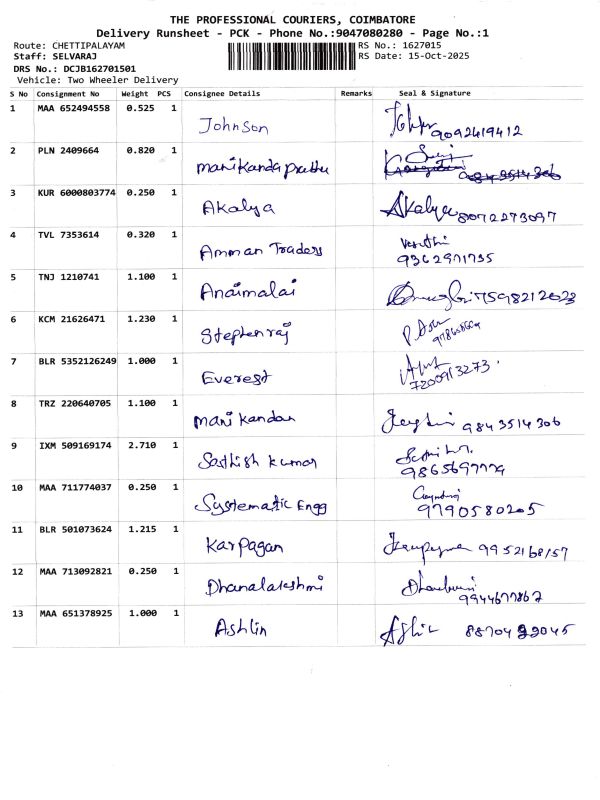 THE PROFESSIONAL COURIERS, COIMBATORE
Delivery Runsheet - PCK - Phone No.:9047080280 - Page No.:1
Route: CHETTIPALAYAM RS No.: 1627015
Staff: SELVARAJ RS Date: 15-Oct-2025
DRS No.: DCJB162701501
Vehicle: Two Wheeler Delivery
S No Consignment No Weight PCS Consignee Details Remarks Seal & Signature
1 MAA 652494558 0.525 1 Johnson 9092419412
2 PLN 2409664 0.820 1 Manikanda prabhu
3 KUR 6000803774 0.250 1 Akalya Akalya 8072273097
4 TVL 7353614 0.320 1 Amman Traders
9362971735
5 TNJ 1210741 1.100 1 Anaimalai 7598212023
6 KCM 21626471 1.230 1 Stephenraj
7 BLR 5352126249 1.000 1 Everest
7200913273
8 TRZ 220640705 1.100 1 Mani kandan 9843514306
9 IXM 509169174 2.710 1 Sathish kumar
10 MAA 711774037 0.250 1 Systematic Engg
9790580205
11 BLR 501073624 1.215 1 Karpagan 9952168157
12 MAA 713092821 0.250 1 Dhanalakshmi
9944677867
13 MAA 651378925 1.000 1 Ashlin